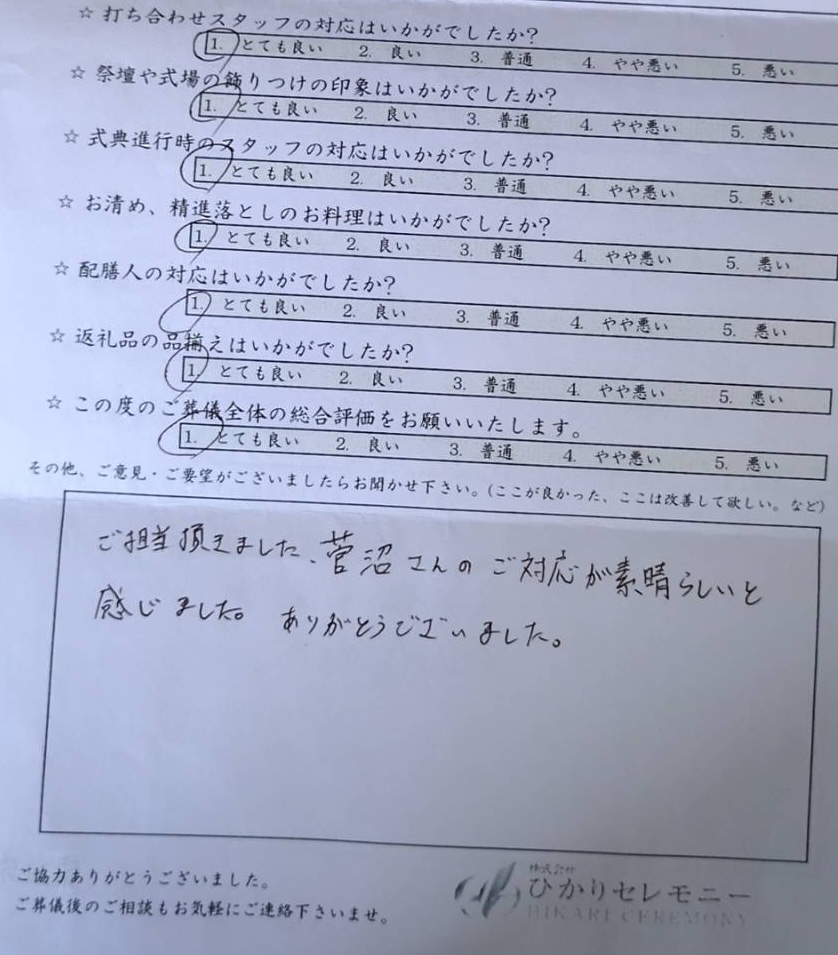 ☆ 打ち合わせスタッフの対応はいかがでしたか?
1. とても良い 2. 良い 3. 普通 4. やや悪い 5. 悪い
☆ 祭壇や式場の飾りつけの印象はいかがでしたか?
1. とても良い 2. 良い 3. 普通 4. やや悪い 5. 悪い
☆ 式典進行時のスタッフの対応はいかがでしたか?
1. とても良い 2. 良い 3. 普通 4. やや悪い 5. 悪い
☆ お清め、精進落としのお料理はいかがでしたか?
1. とても良い 2. 良い 3. 普通 4. やや悪い 5. 悪い
☆ 配膳人の対応はいかがでしたか?
1. とても良い 2. 良い 3. 普通 4. やや悪い 5. 悪い
☆ 返礼品の品揃えはいかがでしたか?
1. とても良い 2. 良い 3. 普通 4. やや悪い 5. 悪い
☆ この度のご葬儀全体の総合評価をお願いいたします。
1. とても良い 2. 良い 3. 普通 4. やや悪い 5. 悪い
その他、ご意見・ご要望がございましたらお聞かせ下さい。(ここが良かった、ここは改善して欲しい。など)
ご担当頂きました、菅沼さんのご対応が素晴らしいと
感じました。ありがとうございました。
ご協力ありがとうございました。
ご葬儀後のご相談もお気軽にご連絡下さいませ。
株式会社
ひかりセレモニー
HIKARI CEREMONY